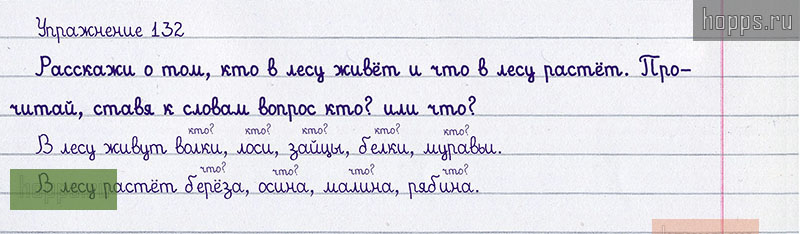 hopps.ru
Упражнение 132
Расскажи о том, кто в лесу живёт и что в лесу растёт. Про-
читай, ставя к словам вопрос кто? или что?
кто? кто? кто? кто? кто?
В лесу живут волки, лоси, зайцы, белки, муравьи.
что? что? что? что?
В лесу растёт берёза, осина, малина, рябина.